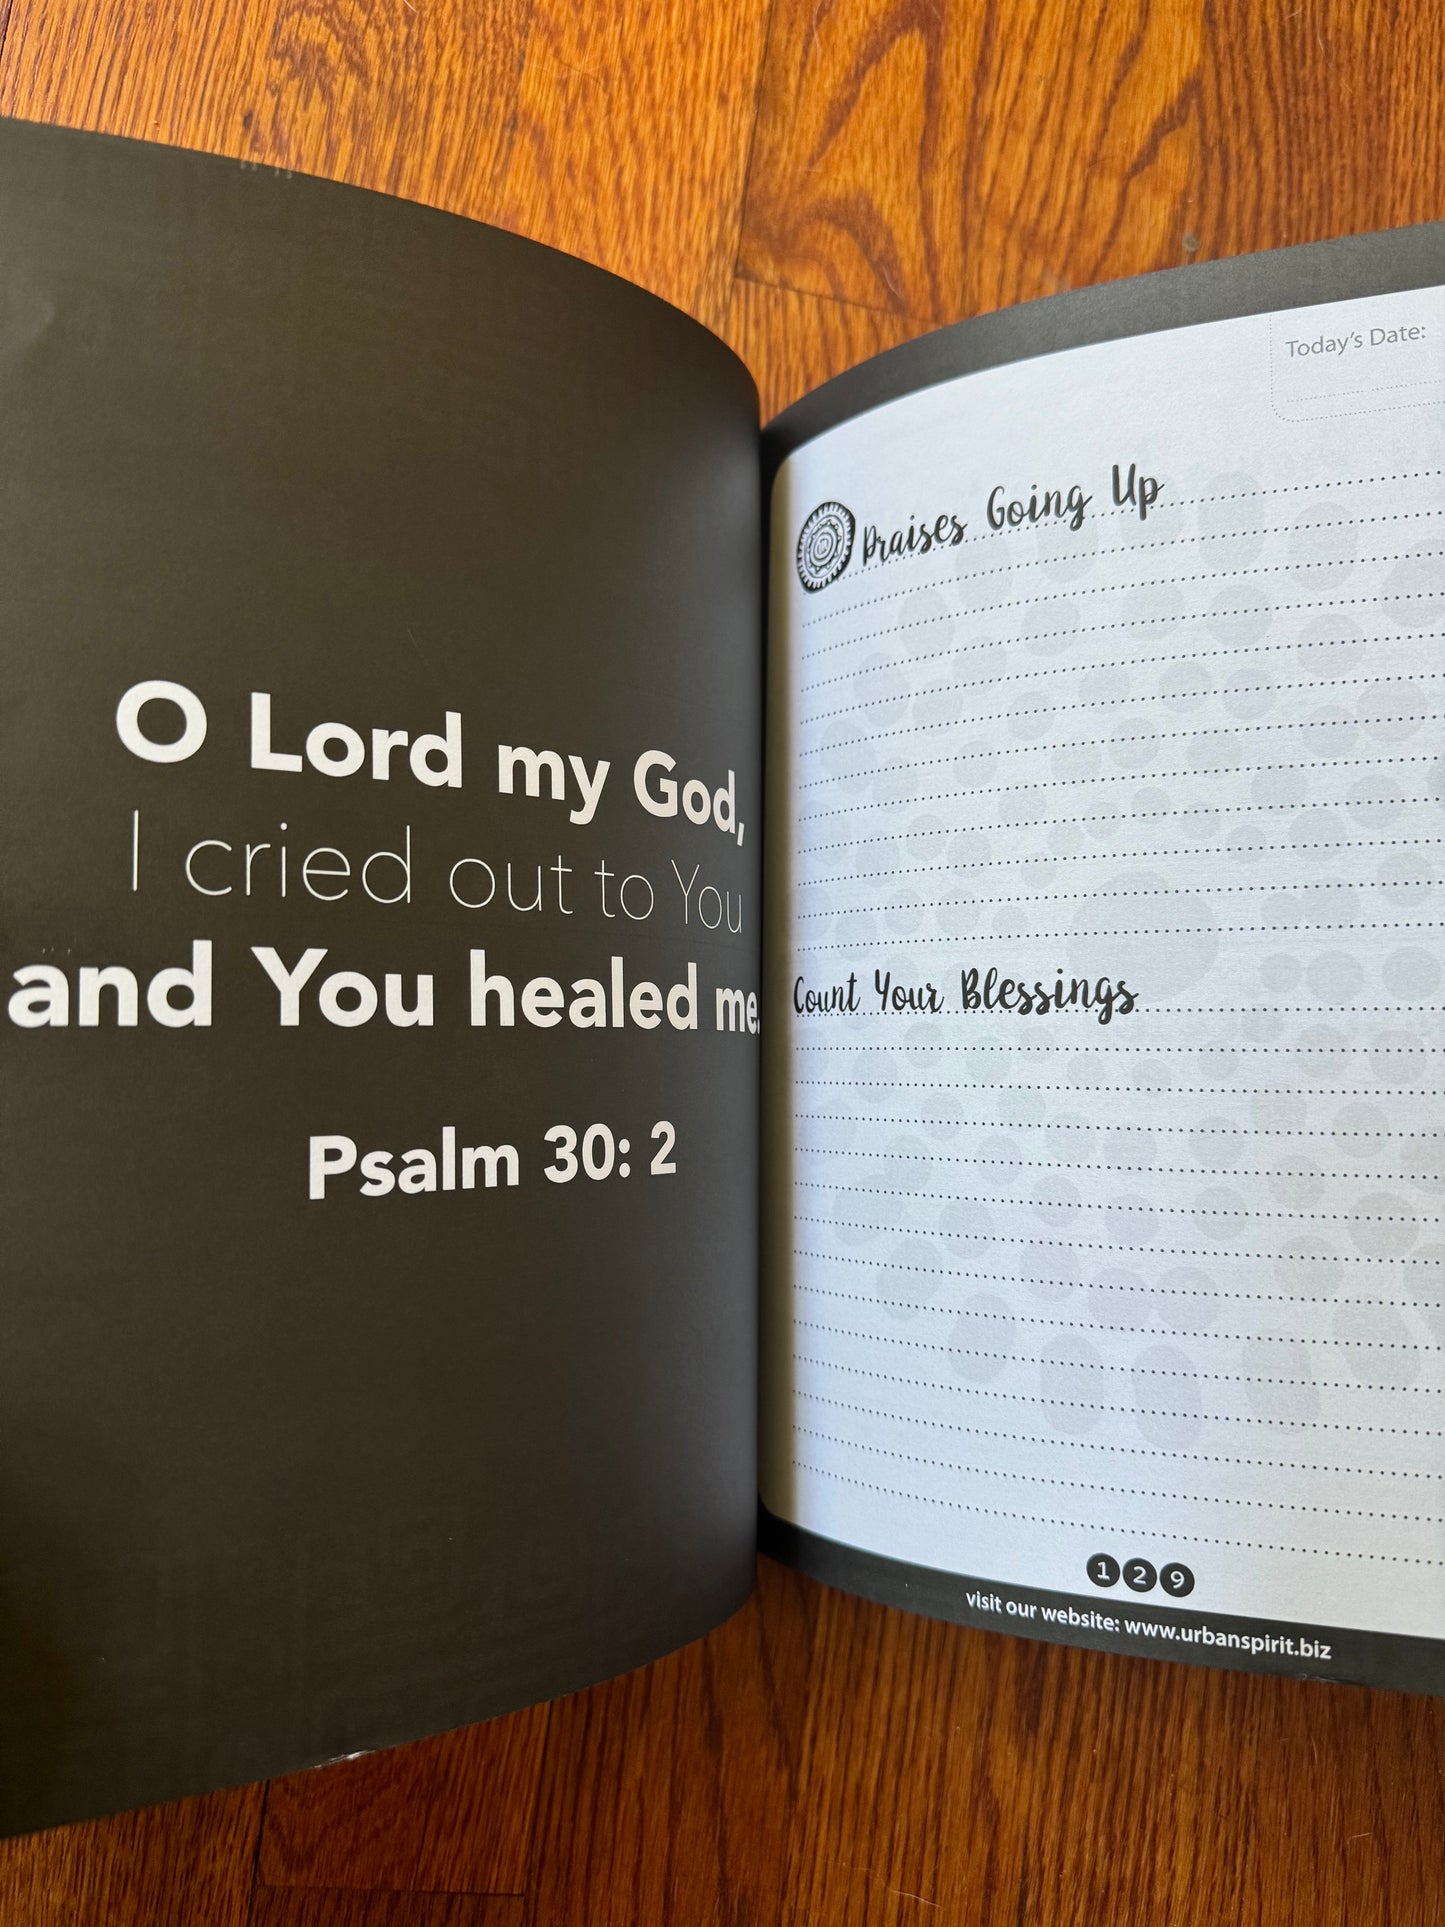 O Lord my God,
I cried out to You
and You healed me.
Psalm 30: 2
Today's Date:
Praises Going Up
Count Your Blessings
129
visit our website: www.urbanspirit.biz